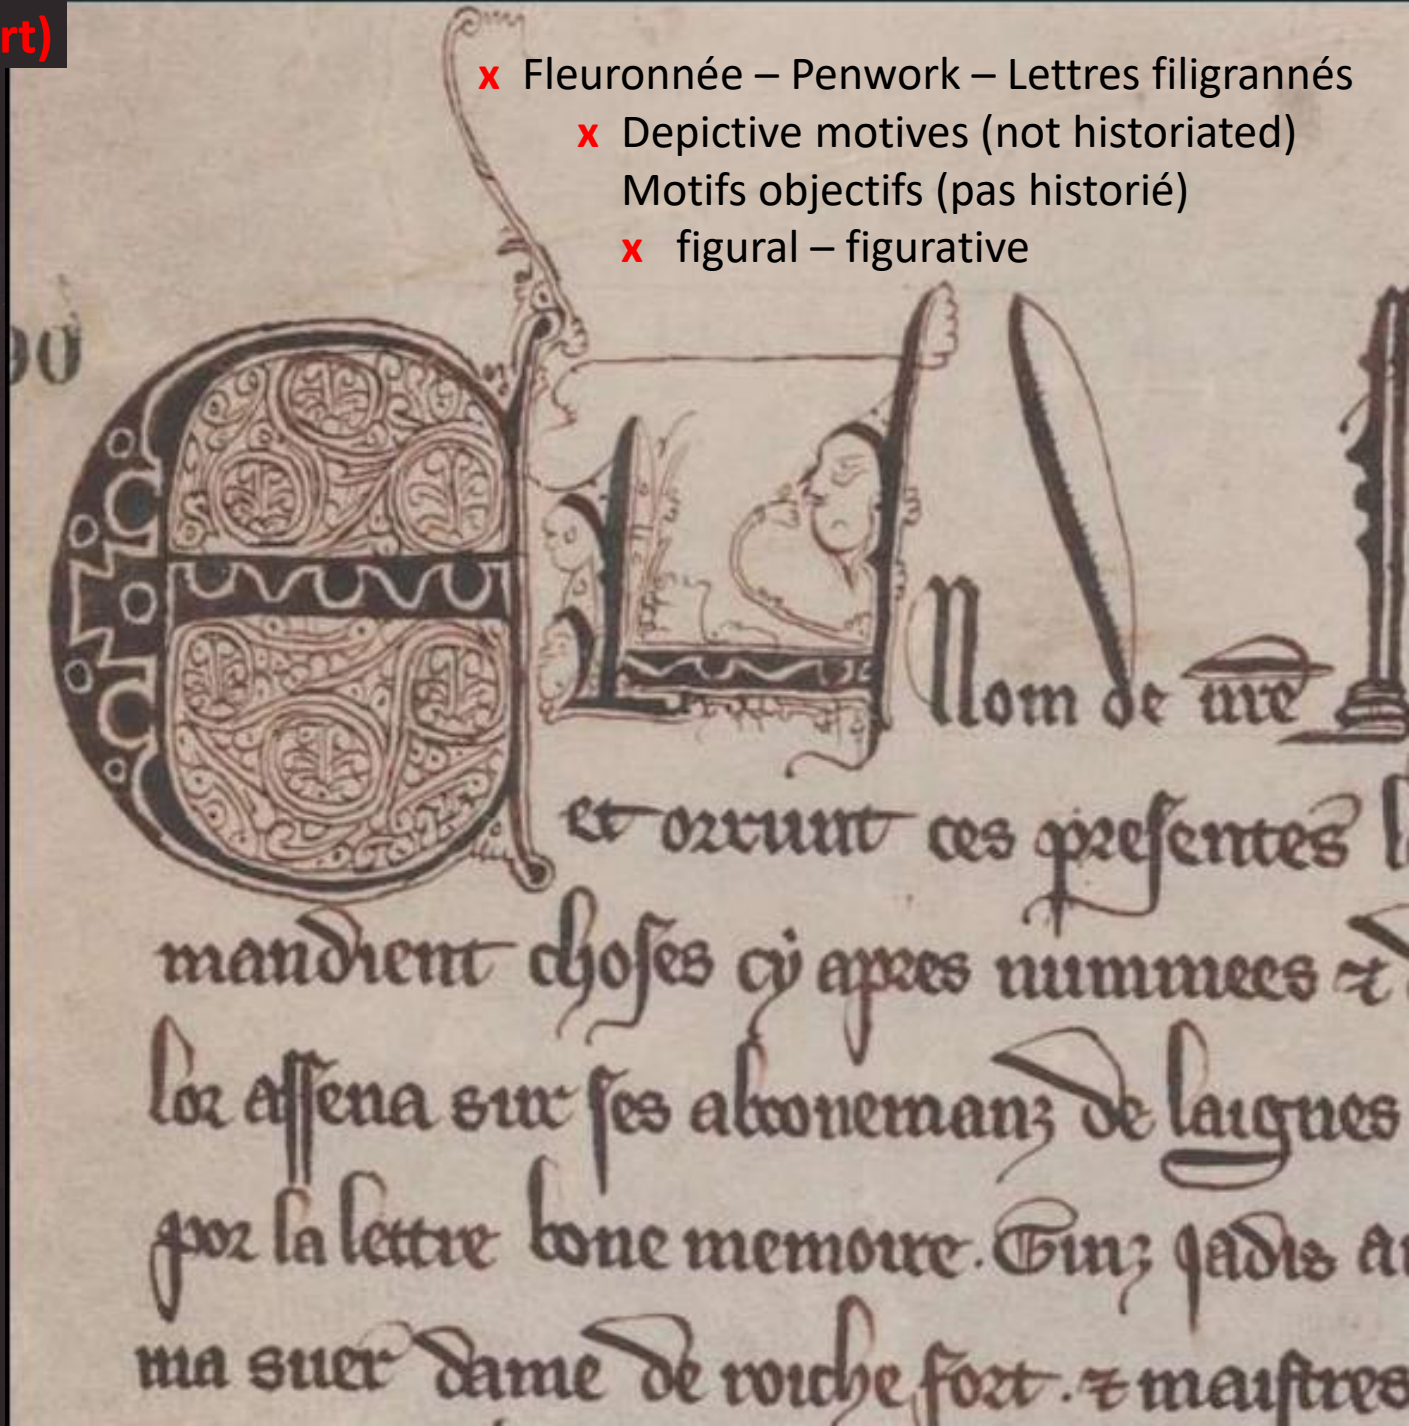 rt)
x Fleuronnée – Penwork – Lettres filigrannés
x Depictive motives (not historiated)
Motifs objectifs (pas historié)
x figural – figurative
EN nom de nr̄e
et orrunt ces presentes l
mandient choses cy apres nummees ⁊
lor assena sur ses abonemanz de laignes
por la lettre bone memoire. Guiz jadis a
ma suer dame de roiche fort. ⁊ maistres